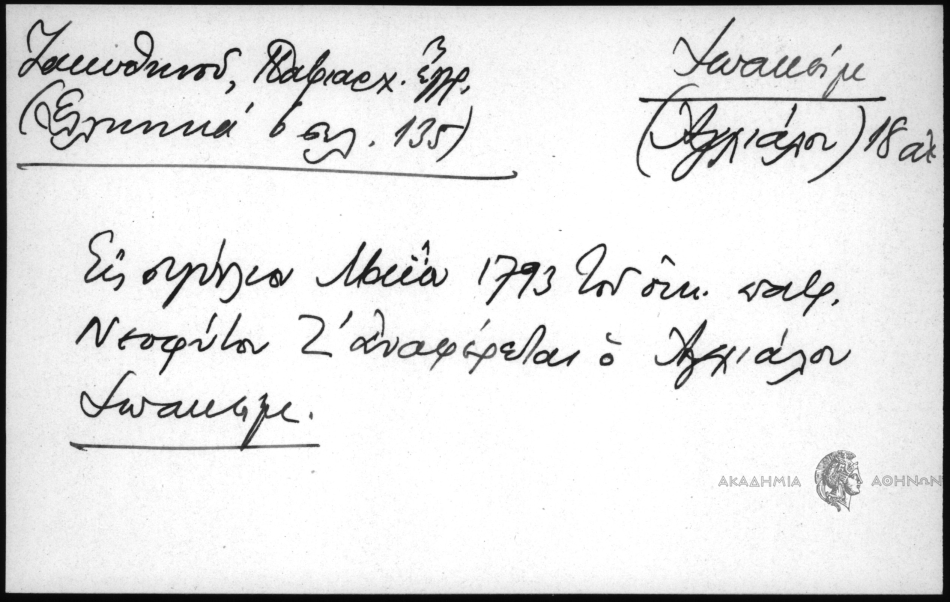 Ζακυθηνοῦ, Πατριαρχ. ἔγγρ.
(Ἑλληνικά 6 σελ. 135)
Ἰωακείμ
(Ἀγχιάλου) 18 αἰ.
Εἰς σιγίλλιον Μαΐου 1793 τοῦ οἰκ. πατρ.
Νεοφύτου Ζ΄ ἀναφέρεται ὁ Ἀγχιάλου
Ἰωακείμ.
ΑΚΑΔΗΜΙΑ ΑΘΗΝΩΝ